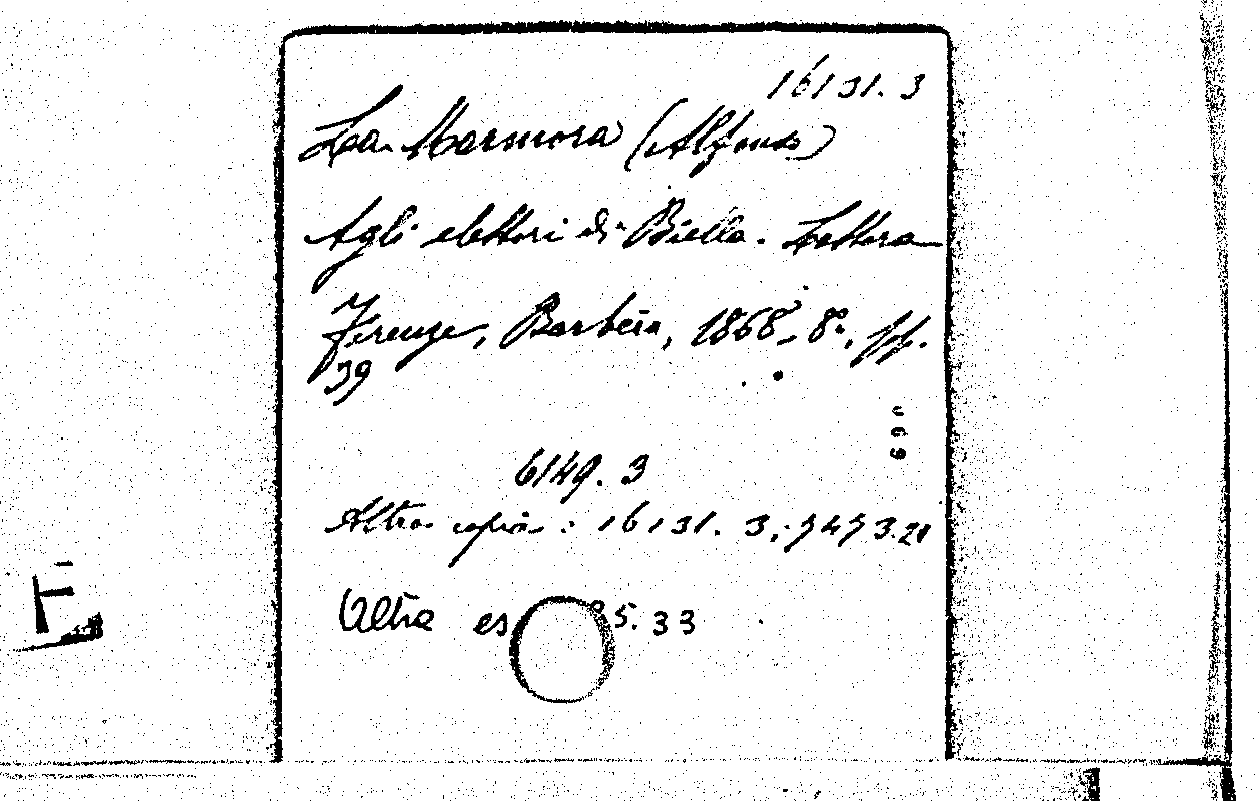 16131.3
La Marmora (Alfonso)
Agli elettori di Biella. Lettera
Firenze, Barbèra, 1868, 8°, pp.
39
6149.3
Altra copia: 16131.3;
Altra es 5.33
F